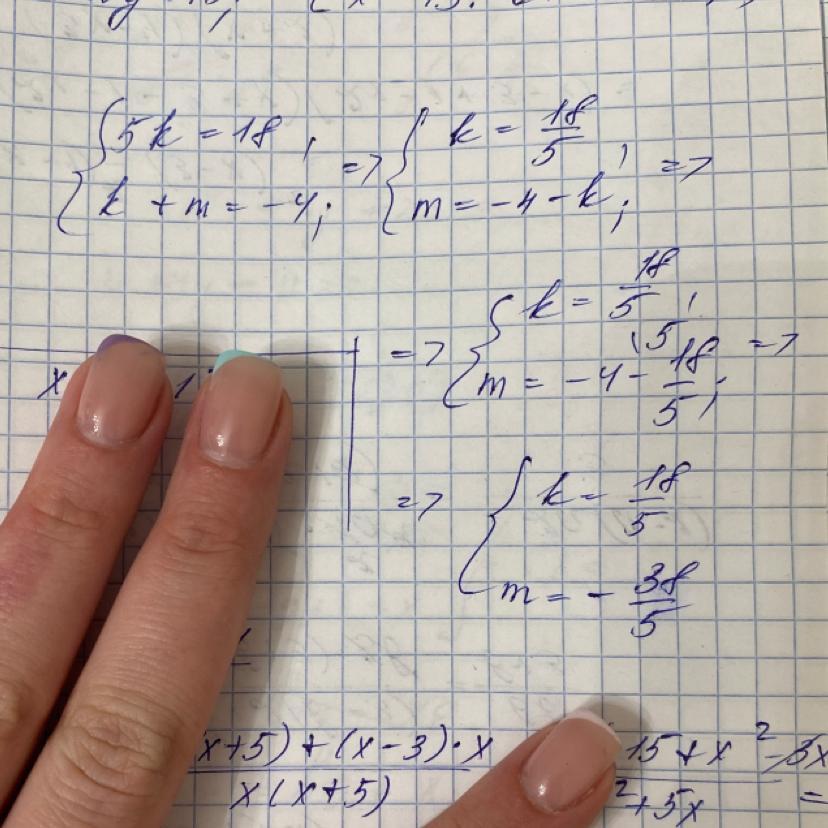 { 5k = 18, k + m = -4; => { k = 18/5, m = -4 - k; =>
=> { k = 18/5, m = -4 - 18/5; (5 =>
=> { k = 18/5 m = - 38/5
x 1
x+5) + (x-3)·x / x(x+5)
15 + x² - 3x / ²+5x =